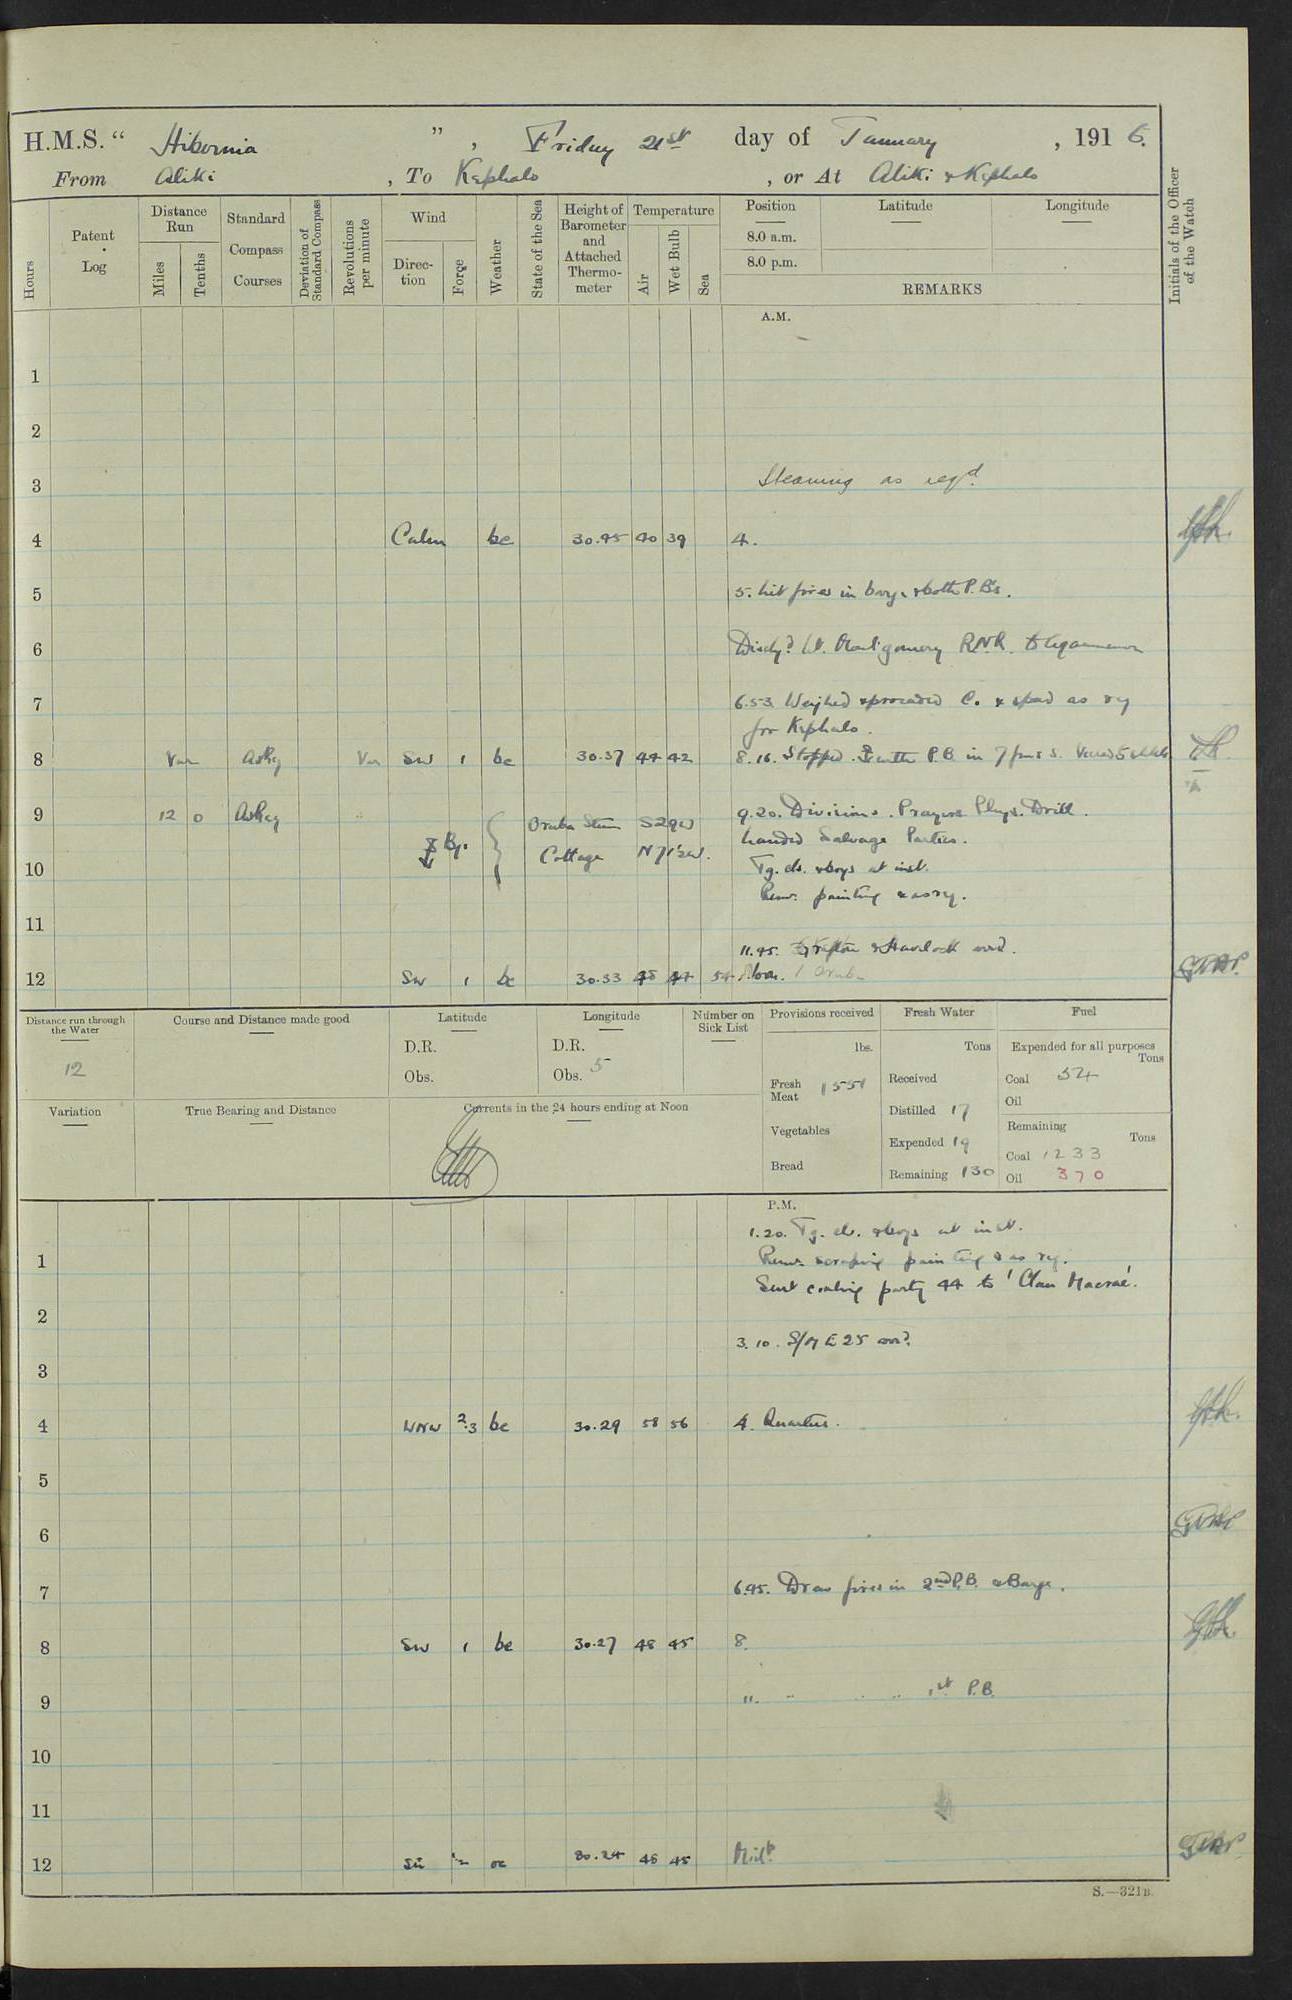 H.M.S. " Hibernia ", Friday 21st day of January, 1916.
From Aliki, To Kephalo, or At Aliki & Kephalo
Hours
Patent Log
Distance Run
Miles
Tenths
Standard Compass Courses
Deviation of Standard Compass
Revolutions per minute
Wind
Direction
Force
Weather
State of the Sea
Height of Barometer and Attached Thermometer
Temperature
Air
Wet Bulb
Sea
Position
8.0 a.m.
8.0 p.m.
Latitude
Longitude
REMARKS
Initials of the Officer of the Watch
A.M.
1
2
Steaming as reqd.
3
4 Calm bc 30.45 40 39 4.
5 5. Lit fires in barge & both P.B's.
6 Dischd. Lt. Montgomery R.N.R. to Agamemnon
7 6.53 Weighed & proceeded Co. & speed as req
for Kephalo.
8 Var AsReq Var SW 1 bc 30.37 44 42 8.16. Stopped. with P.B. in 7 fms S. Veered 5 shackles
9 12 0 AsReq 9.20. Divisions. Prayers. Phys. Drill.
Bgs. { Oruba Stem S29W
Cottage N71½W.
Landed Salvage Parties.
10 Tg. cls. & boys at inst.
Remr. painting & as req.
11
11.45. Grafton & Havelock arrd.
12 SW 1 bc 30.33 45 44 54 Noon.
Distance run through the Water
12
Course and Distance made good
Latitude
D.R.
Obs.
Longitude
D.R.
Obs.
Number on Sick List
5
Provisions received
lbs.
Fresh Meat 1551
Vegetables
Bread
Fresh Water
Tons
Received
Distilled 17
Expended 19
Remaining 130
Fuel
Expended for all purposes
Tons
Coal 54
Oil
Remaining
Tons
Coal 1233
Oil 370
Variation
True Bearing and Distance
Currents in the 24 hours ending at Noon
P.M.
1.20. Tg. cls. & boys at inst.
1 Remr. scraping painting & as req.
Sent coaling party 44 to 'Clan Macrae'.
2
3.10. S/M E25 arrd.
3
4 WNW 2.3 bc 30.29 58 56 4. Quarters.
5
6
7 6.45. Drew fires in 2nd P.B. & Barge.
8 SW 1 bc 30.27 48 45 8.
9 11. " " " 1st P.B.
10
11
12 30.24 48 45 Midt.
S.—321B.